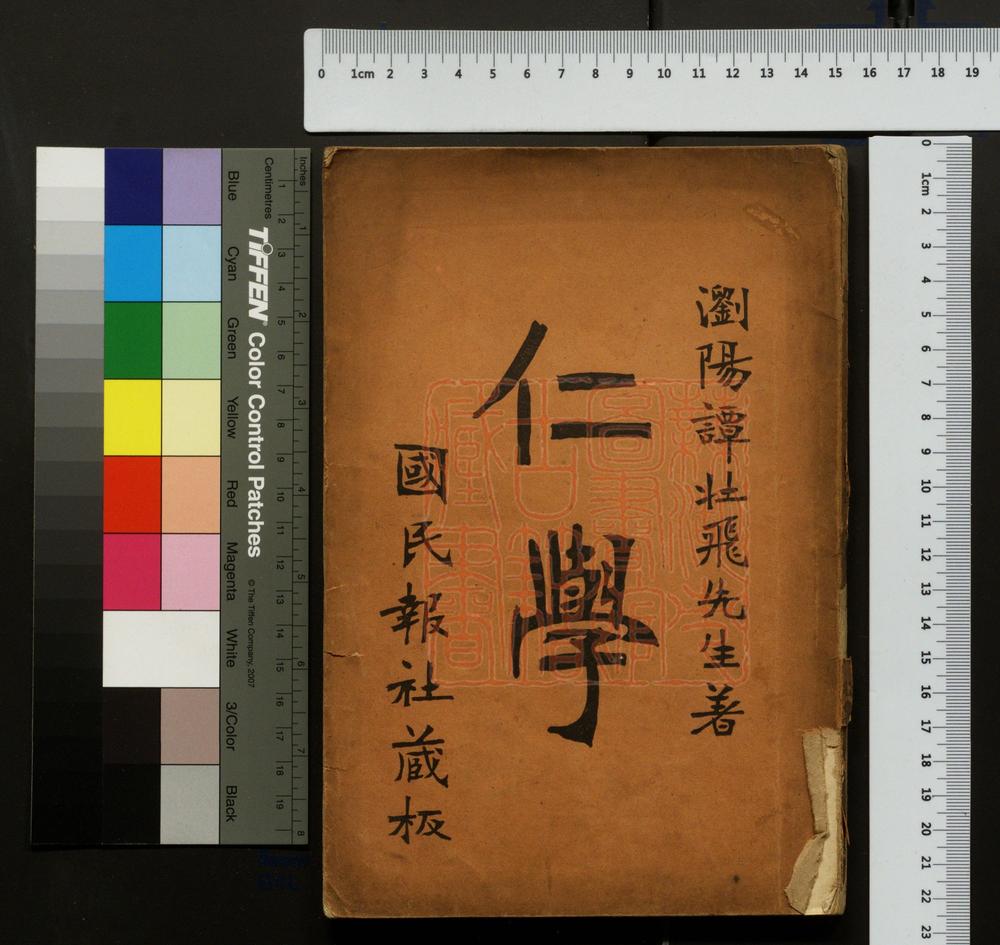 瀏陽譚壯飛先生著
仁學
國民報社蔵板
0 1cm 2 3 4 5 6 7 8 9 10 11 12 13 14 15 16 17 18 19
0 1cm 2 3 4 5 6 7 8 9 10 11 12 13 14 15 16 17 18 19 20 21 22 23
Inches 1 2 3 4 5 6 7 8
Centimetres 1 2 3 4 5 6 7 8 9 10 11 12 13 14 15 16 17 18 19
TIFFEN® Color Control Patches
© The Tiffen Company, 2007
Blue
Cyan
Green
Yellow
Red
Magenta
White
3/Color
Black